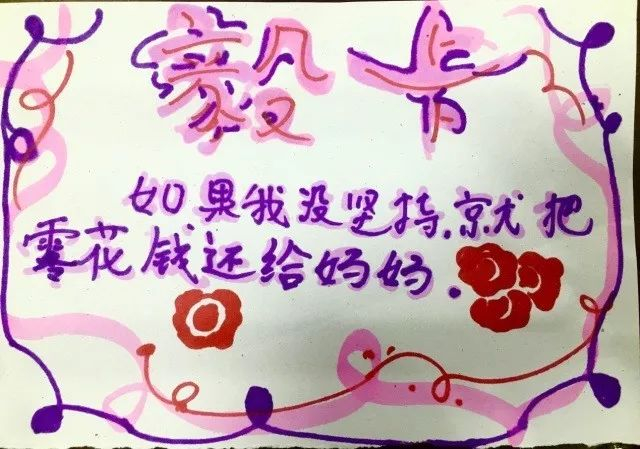 毅卡
如果我没坚持,就把
零花钱还给妈妈.